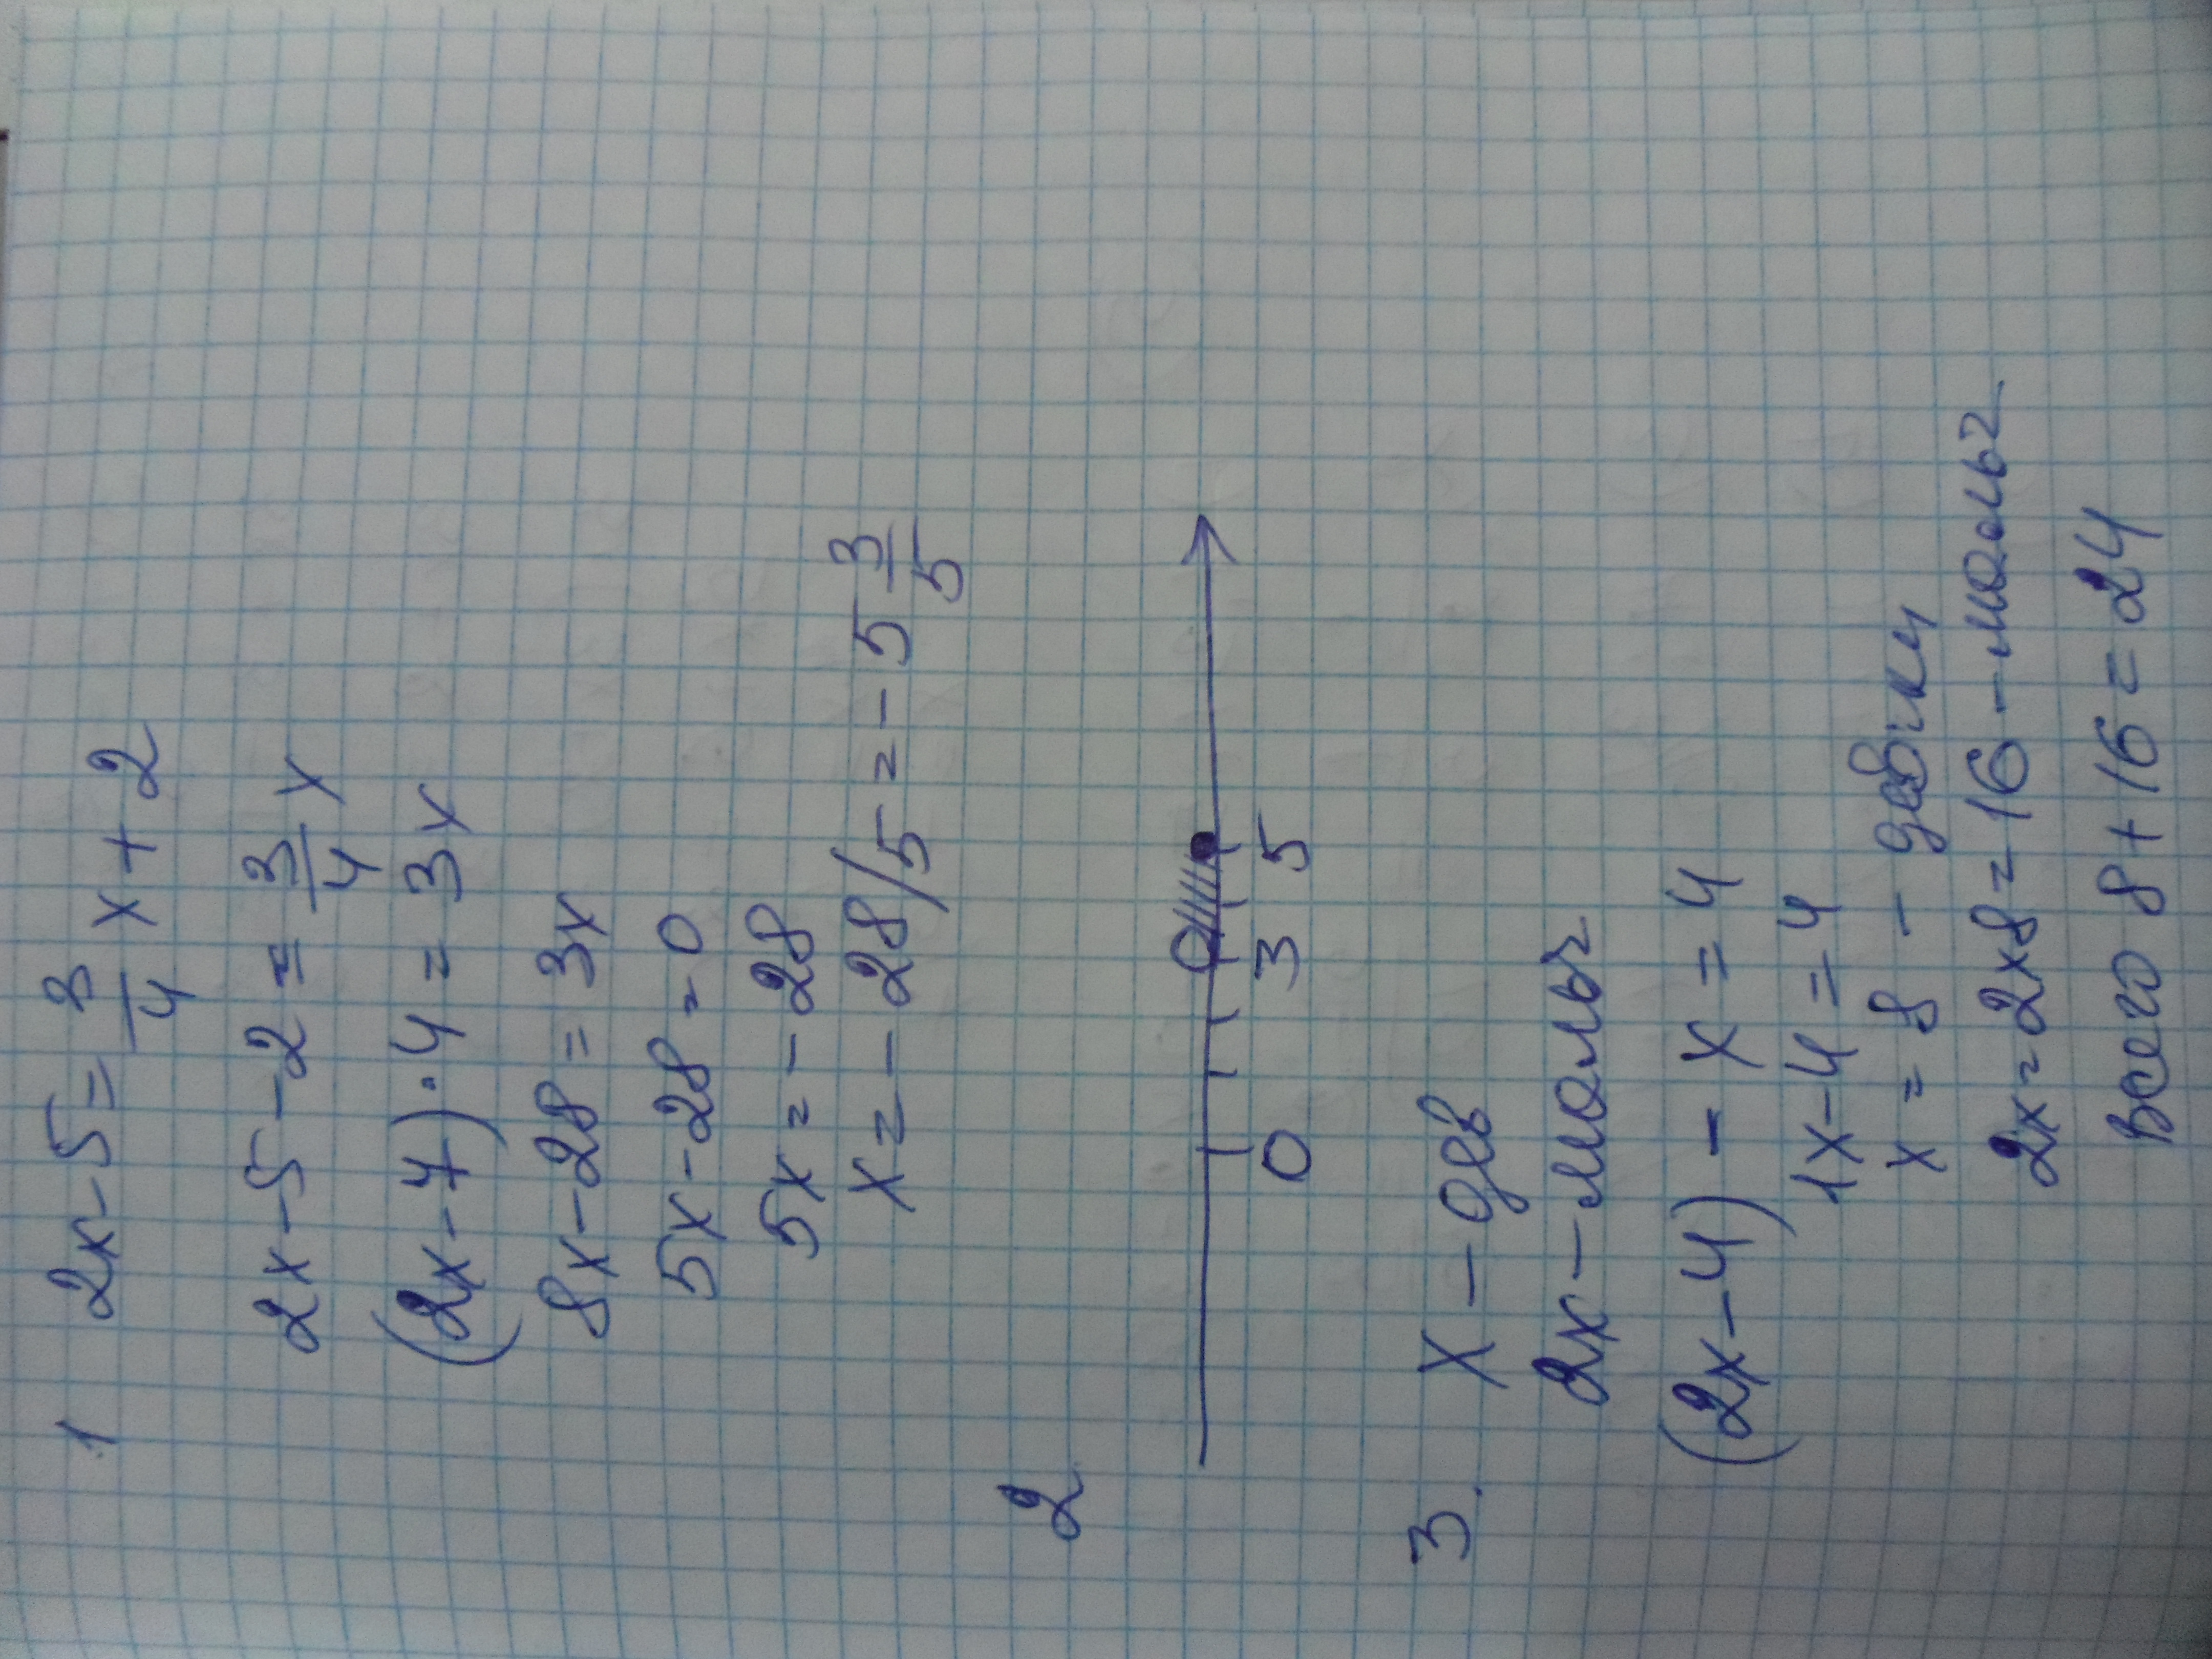 1 2x-5=3/4 x+2
2x-5-2=3/4 x
(2x-7)·4=3x
8x-28=3x
5x-28=0
5x=-28
x=-28/5=-5 3/5
2
0 3 5
3. x - дев
2x - мальч
(2x-4) - x = 4
1x-4=4
x=8 - девчки
2x=2x8=16 - мальч
Всего 8+16=24